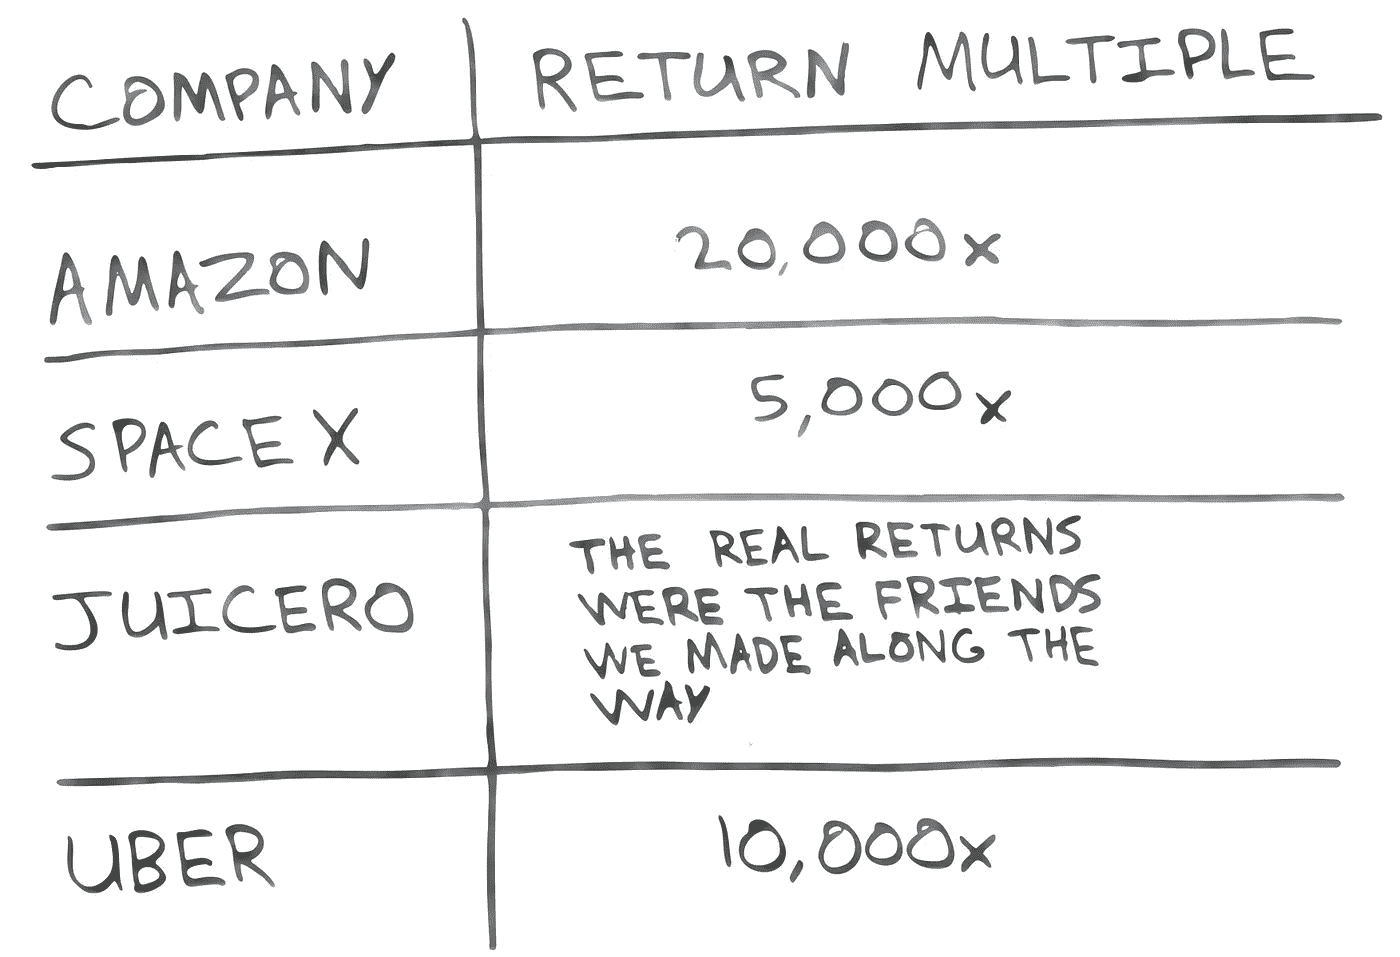 COMPANY RETURN MULTIPLE
AMAZON 20,000x
SPACE X 5,000x
JUICERO THE REAL RETURNS
WERE THE FRIENDS
WE MADE ALONG THE
WAY
UBER 10,000x